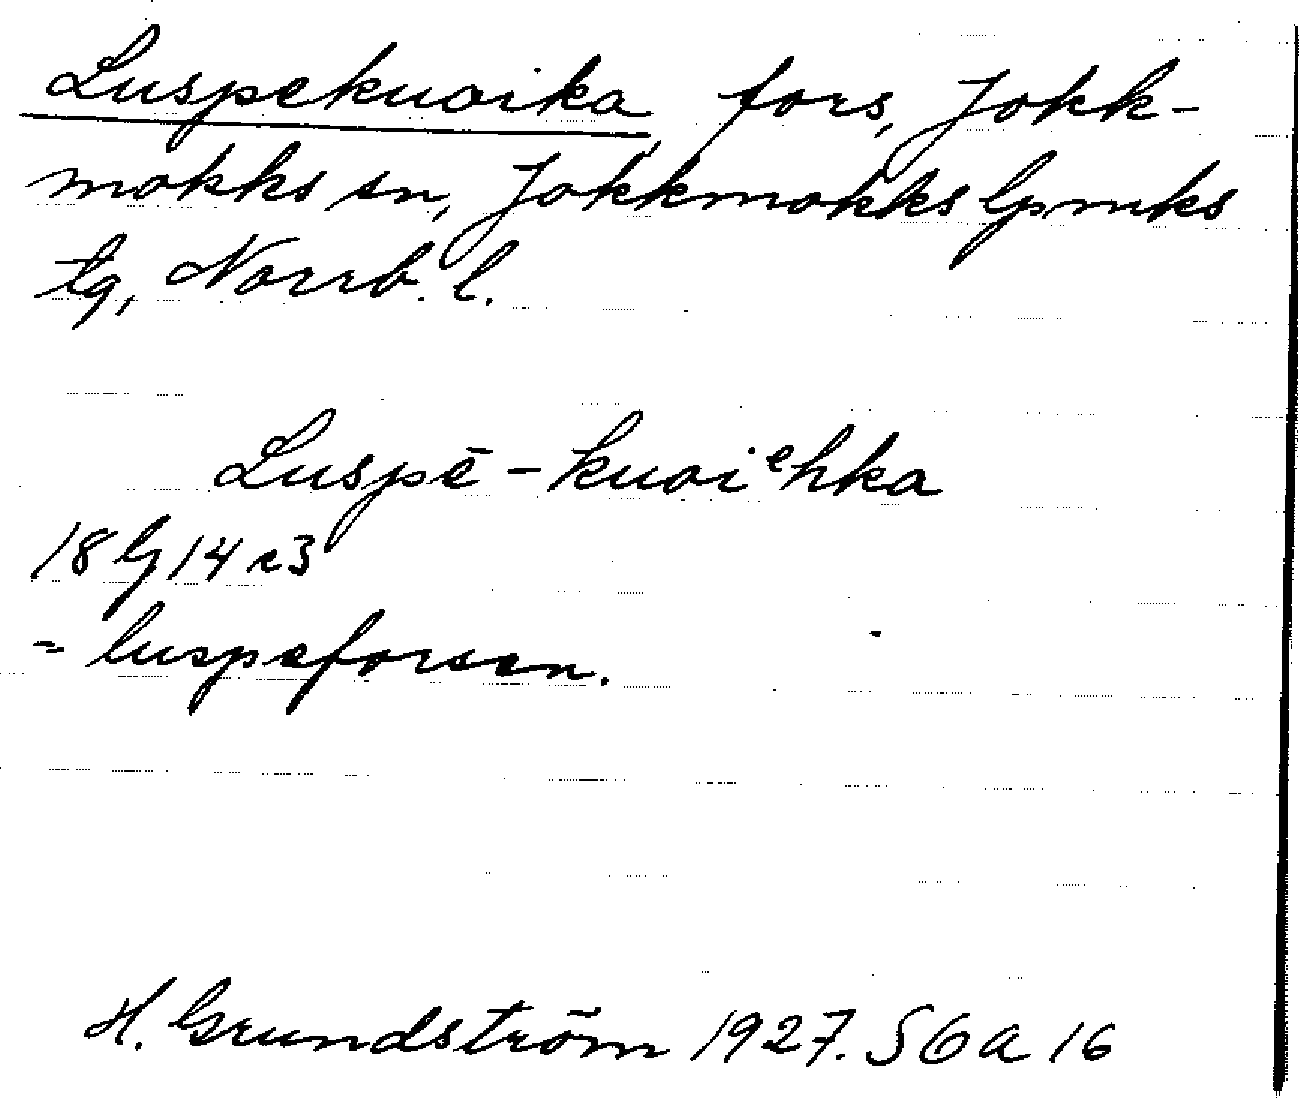 Luspekuoika, fors, Jokk-
mokks sn, Jokkmokks lpmks
tg, Norrb. l.
Luspē-kuoiᵉhka
18 G 14 e3
= luspeforsen.
H. Grundström 1927. S6a 16